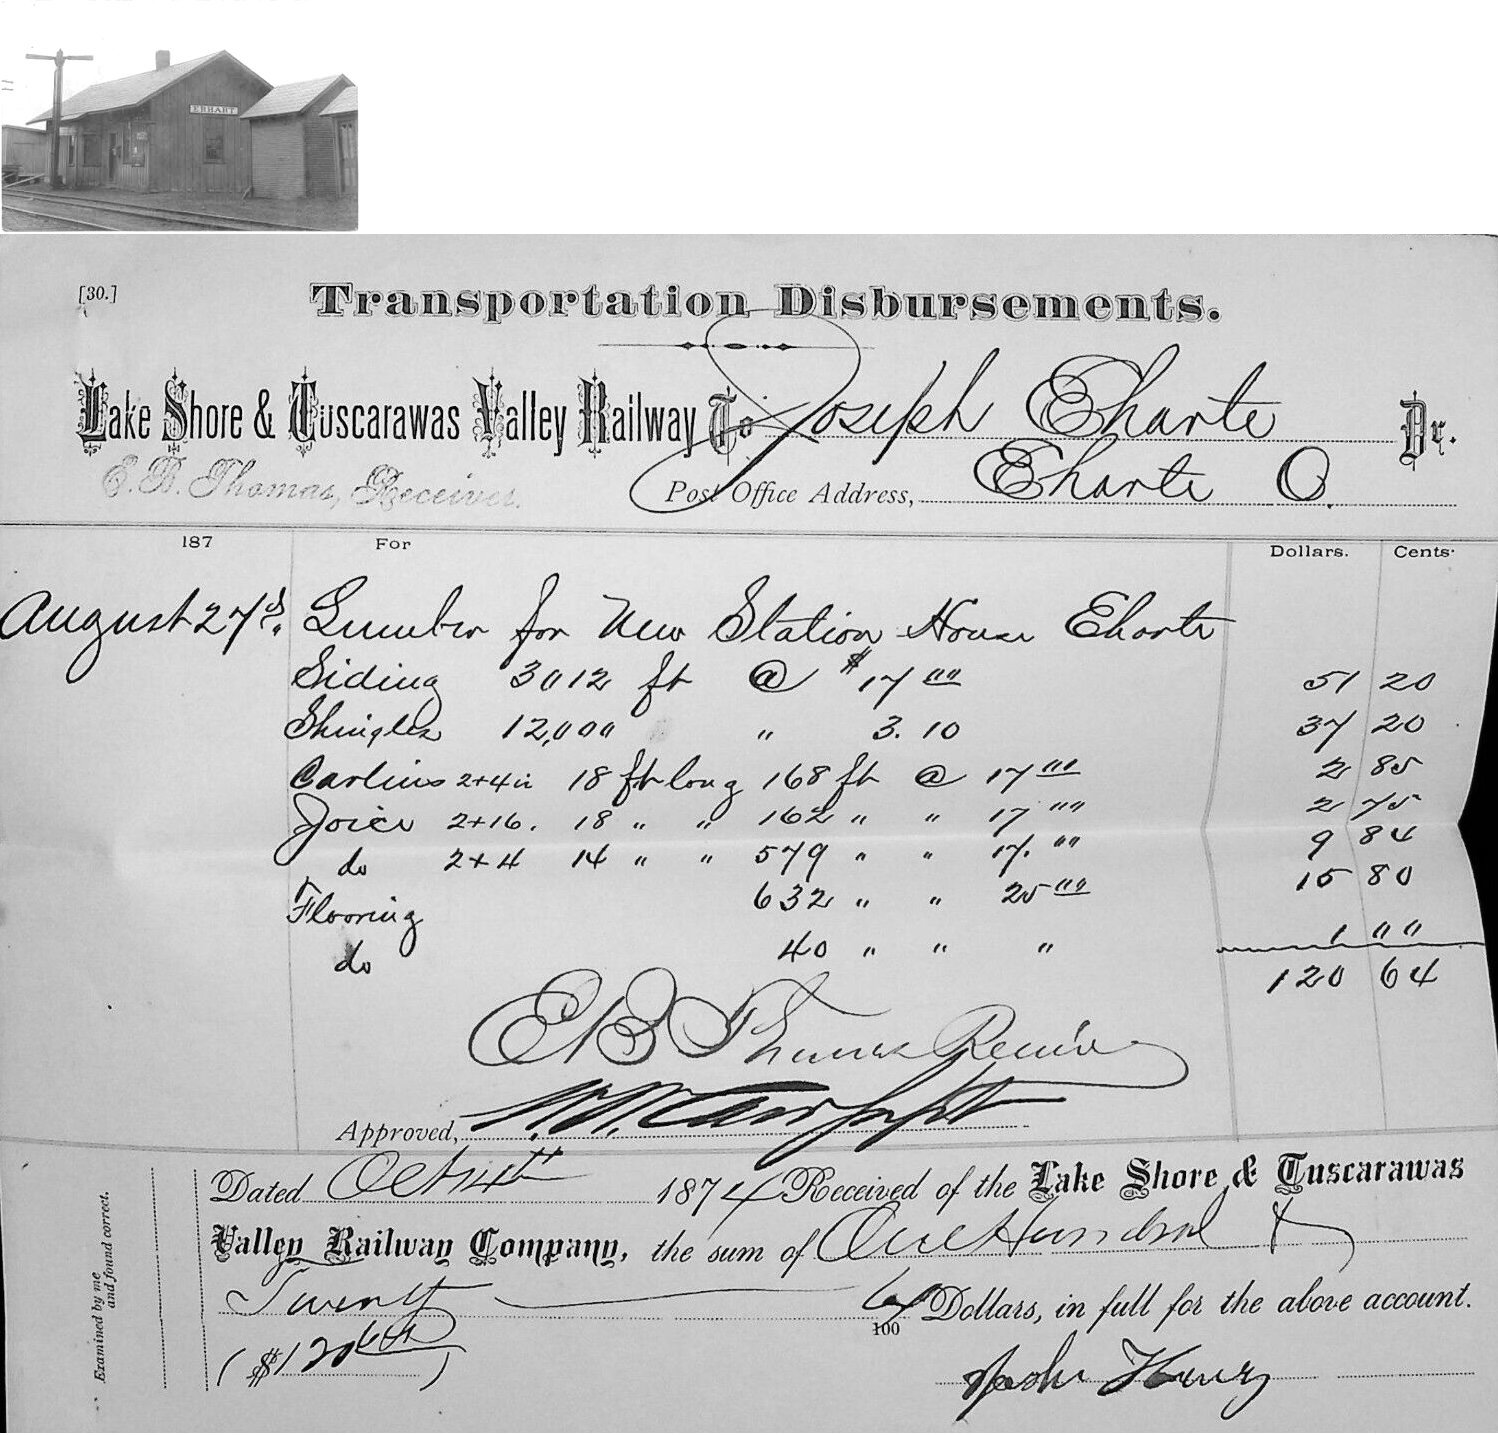 ERHART
[30.]
Transportation Disbursements.
Lake Shore & Tuscarawas Valley Railway To Joseph Eharte Dr.
E. B. Thomas, Receiver.
Post Office Address, Eharte O.
187 For Dollars. Cents.
August 27d. Lumber for New Station House Eharte
Siding 3012 ft @ $17 00 51 20
Shingles 12,000 " 3.10 37 20
Carlins 2+4 in 18 ft long 168 ft @ 17 00 2 85
Joice 2+16. 18 " " 162 " " 17 00 2 75
do 2+4 14 " " 579 " " 17. 00 9 84
Flooring 632 " " 25 00 15 80
do 40 " " " 1 00
120 64
E B Thomas Receiver
Approved,
Dated Oct 14th 1874 Received of the Lake Shore & Tuscarawas
Valley Railway Company, the sum of One Hundred &
Twenty 64/100 Dollars, in full for the above account.
($120 64)
John Henry
Examined by me
and found correct.